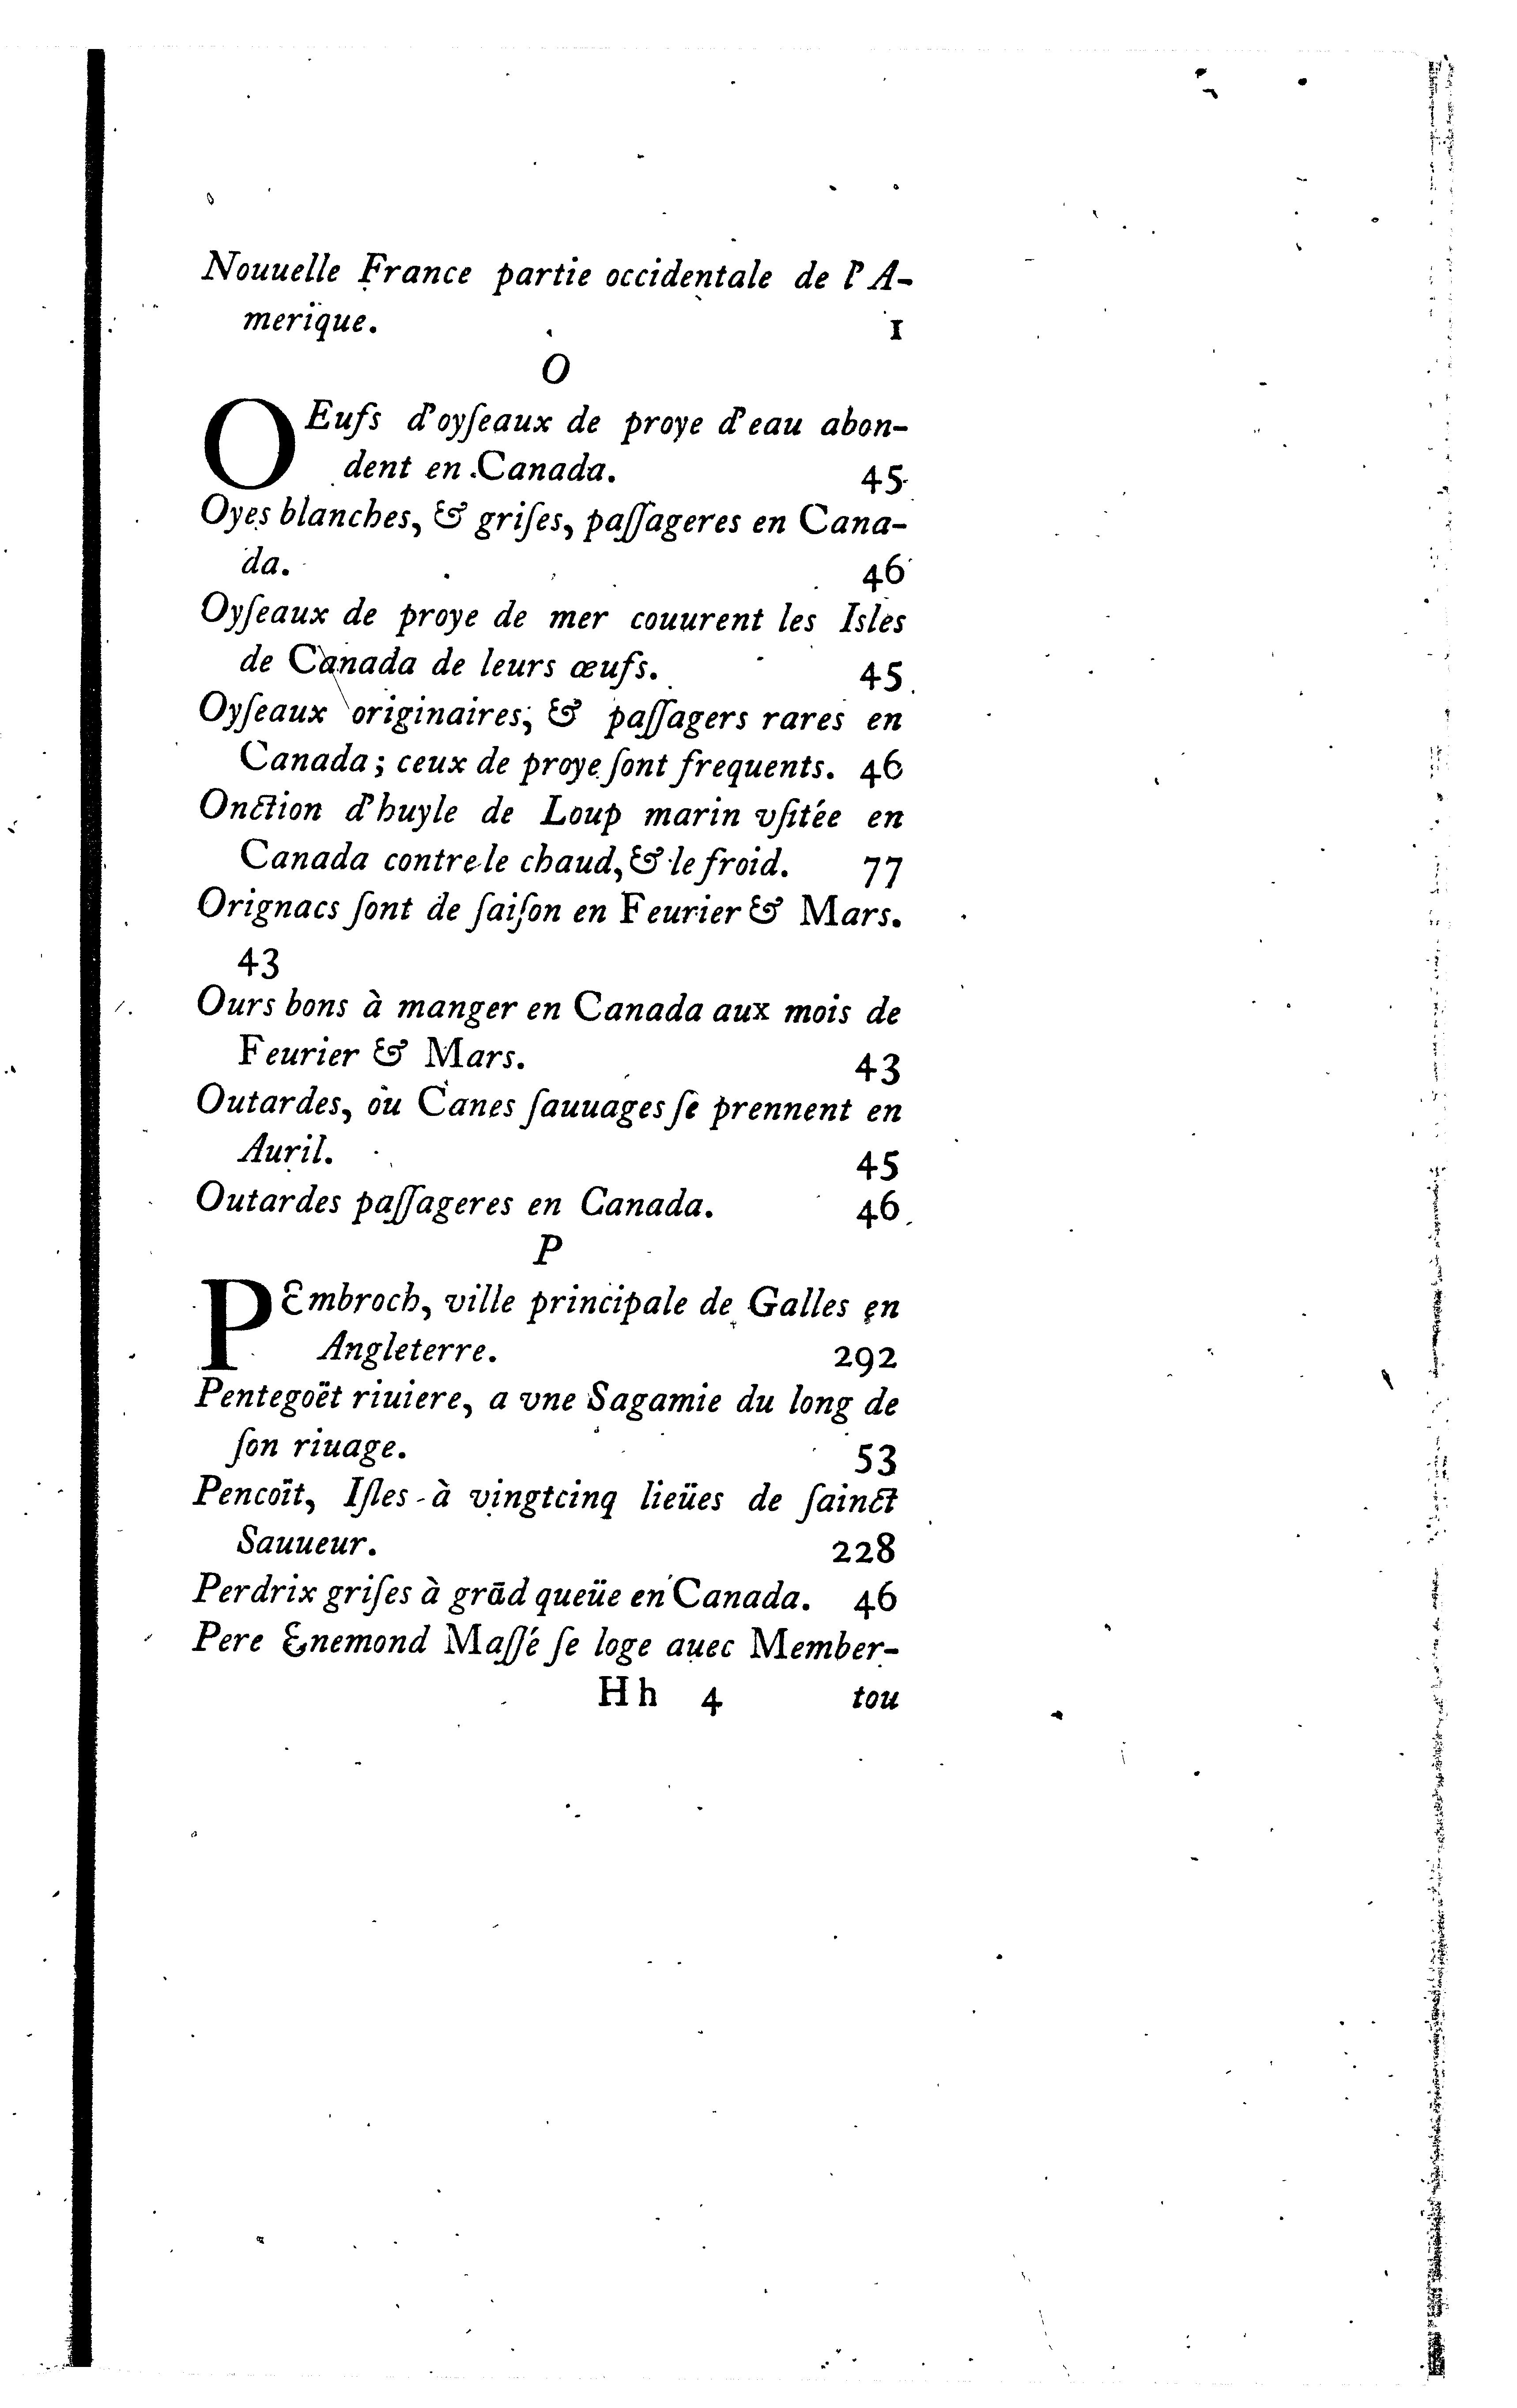 Nouuelle France partie occidentale de l'A-
merique. 1
O
OEufs d'oyſeaux de proye d'eau abon-
dent en Canada. 45
Oyes blanches, & griſes, paſſageres en Cana-
da. 46
Oyſeaux de proye de mer couurent les Isles
de Canada de leurs œufs. 45
Oyſeaux originaires, & paſſagers rares en
Canada; ceux de proye ſont frequents. 46
Onction d'huyle de Loup marin vſitée en
Canada contre le chaud, & le froid. 77
Orignacs ſont de ſaiſon en Feurier & Mars.
43
Ours bons à manger en Canada aux mois de
Feurier & Mars. 43
Outardes, ou Canes ſauuages ſe prennent en
Auril. 45
Outardes paſſageres en Canada. 46
P
PEmbroch, ville principale de Galles en
Angleterre. 292
Pentegoët riuiere, a vne Sagamie du long de
ſon riuage. 53
Pencoït, Iſles à vingtcinq lieües de ſainct
Sauueur. 228
Perdrix griſes à grād queüe en Canada. 46
Pere Enemond Maſſé ſe loge auec Member-
Hh 4 tou